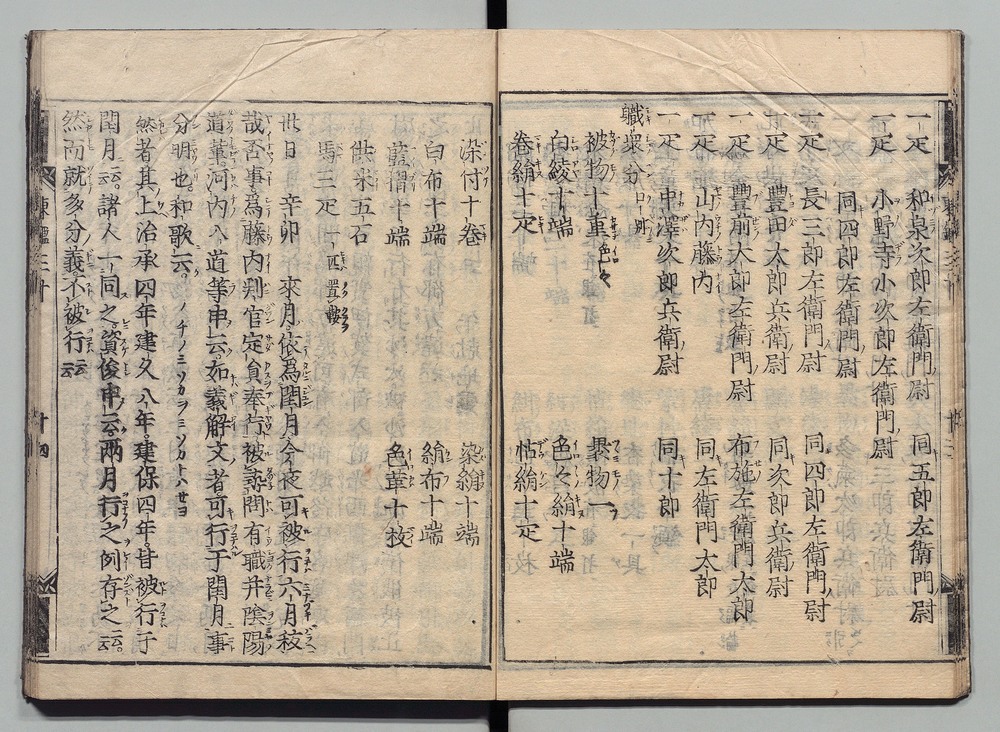 一疋 和泉次郎左衛門尉 同五郎左衛門尉
一疋 小野寺小次郎左衛門尉
同四郎左衛門尉
一疋 長三郎左衛門尉 同四郎左衛門尉
一疋 豊田太郎兵衛尉 同次郎兵衛尉
一疋 豊前太郎左衛門尉 布施左衛門太郎
山内藤内 同左衛門太郎
一疋 中澤次郎兵衛尉 同十郎
職衆分 口別
被物十重 色々 裹物一
白綾十端 色々絹十端
巻絹十疋 帖絹十疋
染付十巻 染絹十端
白布十端 絹布十端
藍摺十端 色革十枚
供米五石
馬三疋 一匹置鞍
廿日 辛卯 來月依爲閏月今夜可被行六月祓
哉否事爲藤内判官定員奉行被尋問有職并陰陽
道輩河内入道等申云如義解文者可行于閏月事
分明也和歌云 ノチノミソカヲミソカトハセヨ
然者其上治承四年建久八年建保四年皆被行于
閏月云云諸人一同之資俊申云兩月行之例存之云云
然而就多分義不被行云云
東鑑三十 十四